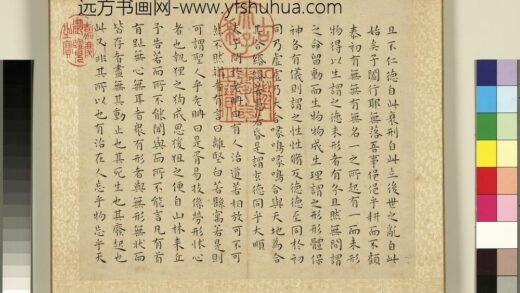 远方书画网-www.yfshuhua.com
且不仁德自此衰刑自此立後世之亂自此
始矣夫子闔行耶無落吾事俋俋乎耕而不顧
泰初有無無有無名一之所起有一而未形
物得以生謂之德未形者有分且然無間謂
之命留動而生物物成生理謂之形形體保
神各有儀則謂之性性脩反德德至同於初
同乃虛虛乃大合喙鳴喙鳴合與天地為合
其合緡緡若愚若昏是謂玄德同乎大順
夫子問於老聃曰有人治道若相放可不可
然不然辯者有言曰離堅白若縣寓若是則
可謂聖人乎老聃曰是胥易技係勞形怵心
者也執狸之狗成思猨狙之便自山林來丘
予告若而所不能聞與而所不能言凡有首
有趾無心無耳者衆有形者與無形無狀而
皆存者盡無其動止也其死生也其廢起也
此又非其所以也有治在人忘乎物忘乎天
嘉慶御覽之寶